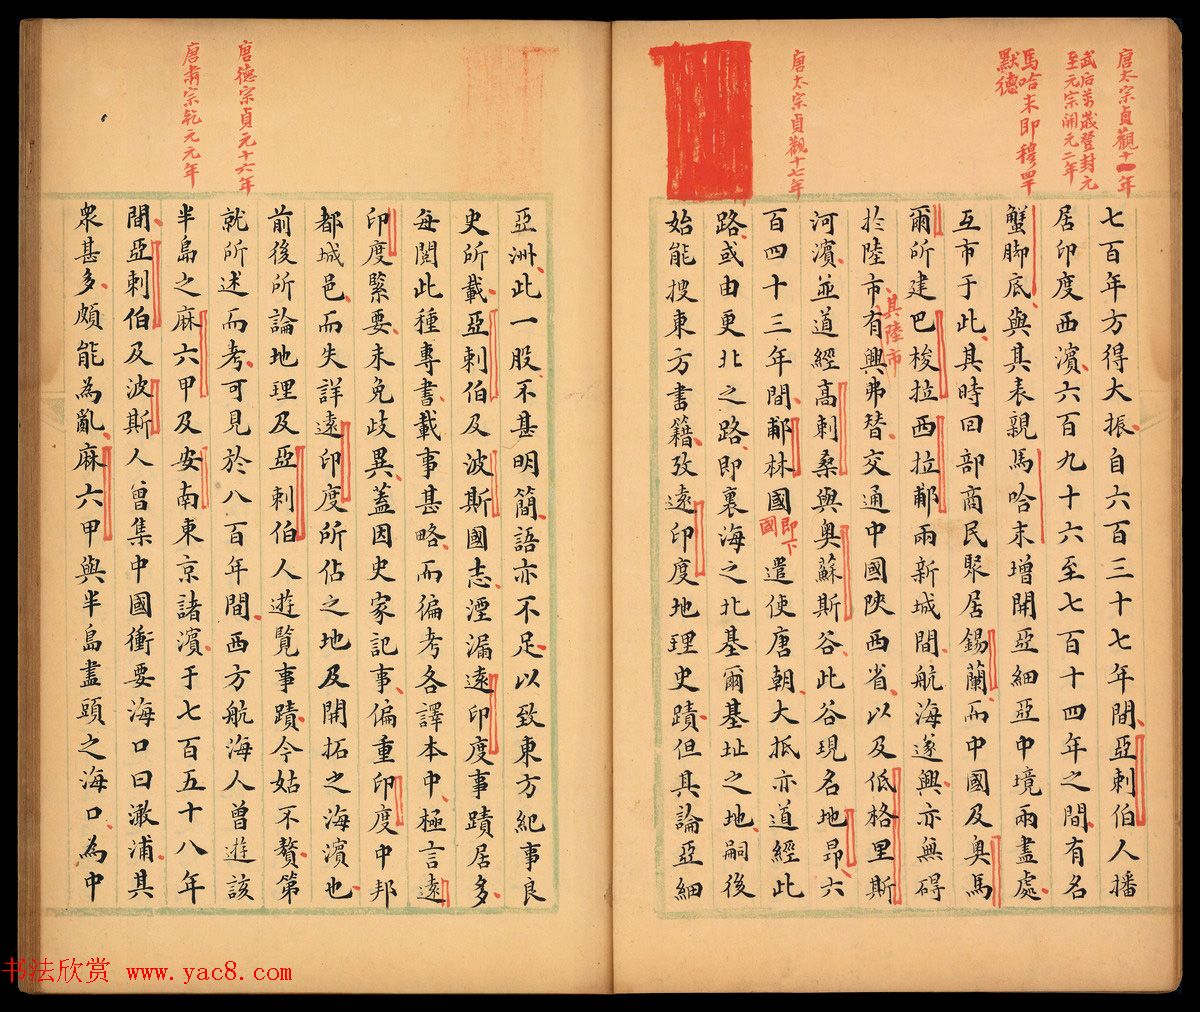 唐太宗貞觀十一年
武后萬歲登封元
至元宗開元二年
馬哈末即穆罕
默德
唐太宗貞觀十七年
七百年方得大振自六百三十七年間亞剌伯人播
居印度西濱六百九十六至七百十四年之間有名
蟹脚底與其表親馬哈末增開亞細亞中境兩盡處
互市于此其時回部商民聚居錫蘭而中國及奥馬
爾所建巴梭拉西拉郙兩新城間航海遂興亦無碍
其陸市
於陸市有興弗替交通中國陝西省以及低格里斯
河濱並道經高剌桑與奥蘇斯谷此谷現名地昂六
百四十三年間郙林國即下國遣使唐朝大抵亦道經此
路或由更北之路即裏海之北基爾基址之地嗣後
始能搜東方書籍攷遠印度地理史蹟但其論亞細
唐德宗貞元十六年
唐肅宗乾元元年
亞洲此一股不甚明簡語亦不足以致東方紀事良
史所載亞剌伯及波斯國志湮漏遠印度事蹟居多
每閱此種專書載事甚略而徧考各譯本中極言遠
印度緊要未免歧異蓋因史家記事偏重印度中邦
都城邑而失詳遠印度所佔之地及開拓之海濱也
前後所論地理及亞剌伯人遊覽事蹟今姑不贅第
就所述而考可見於八百年間西方航海人曾遊該
半島之麻六甲及安南東京諸濱于七百五十八年
間亞剌伯及波斯人曾集中國衝要海口曰澉浦其
衆甚多頗能為亂麻六甲與半島盡頭之海口為中
书法欣赏 www.yac8.com